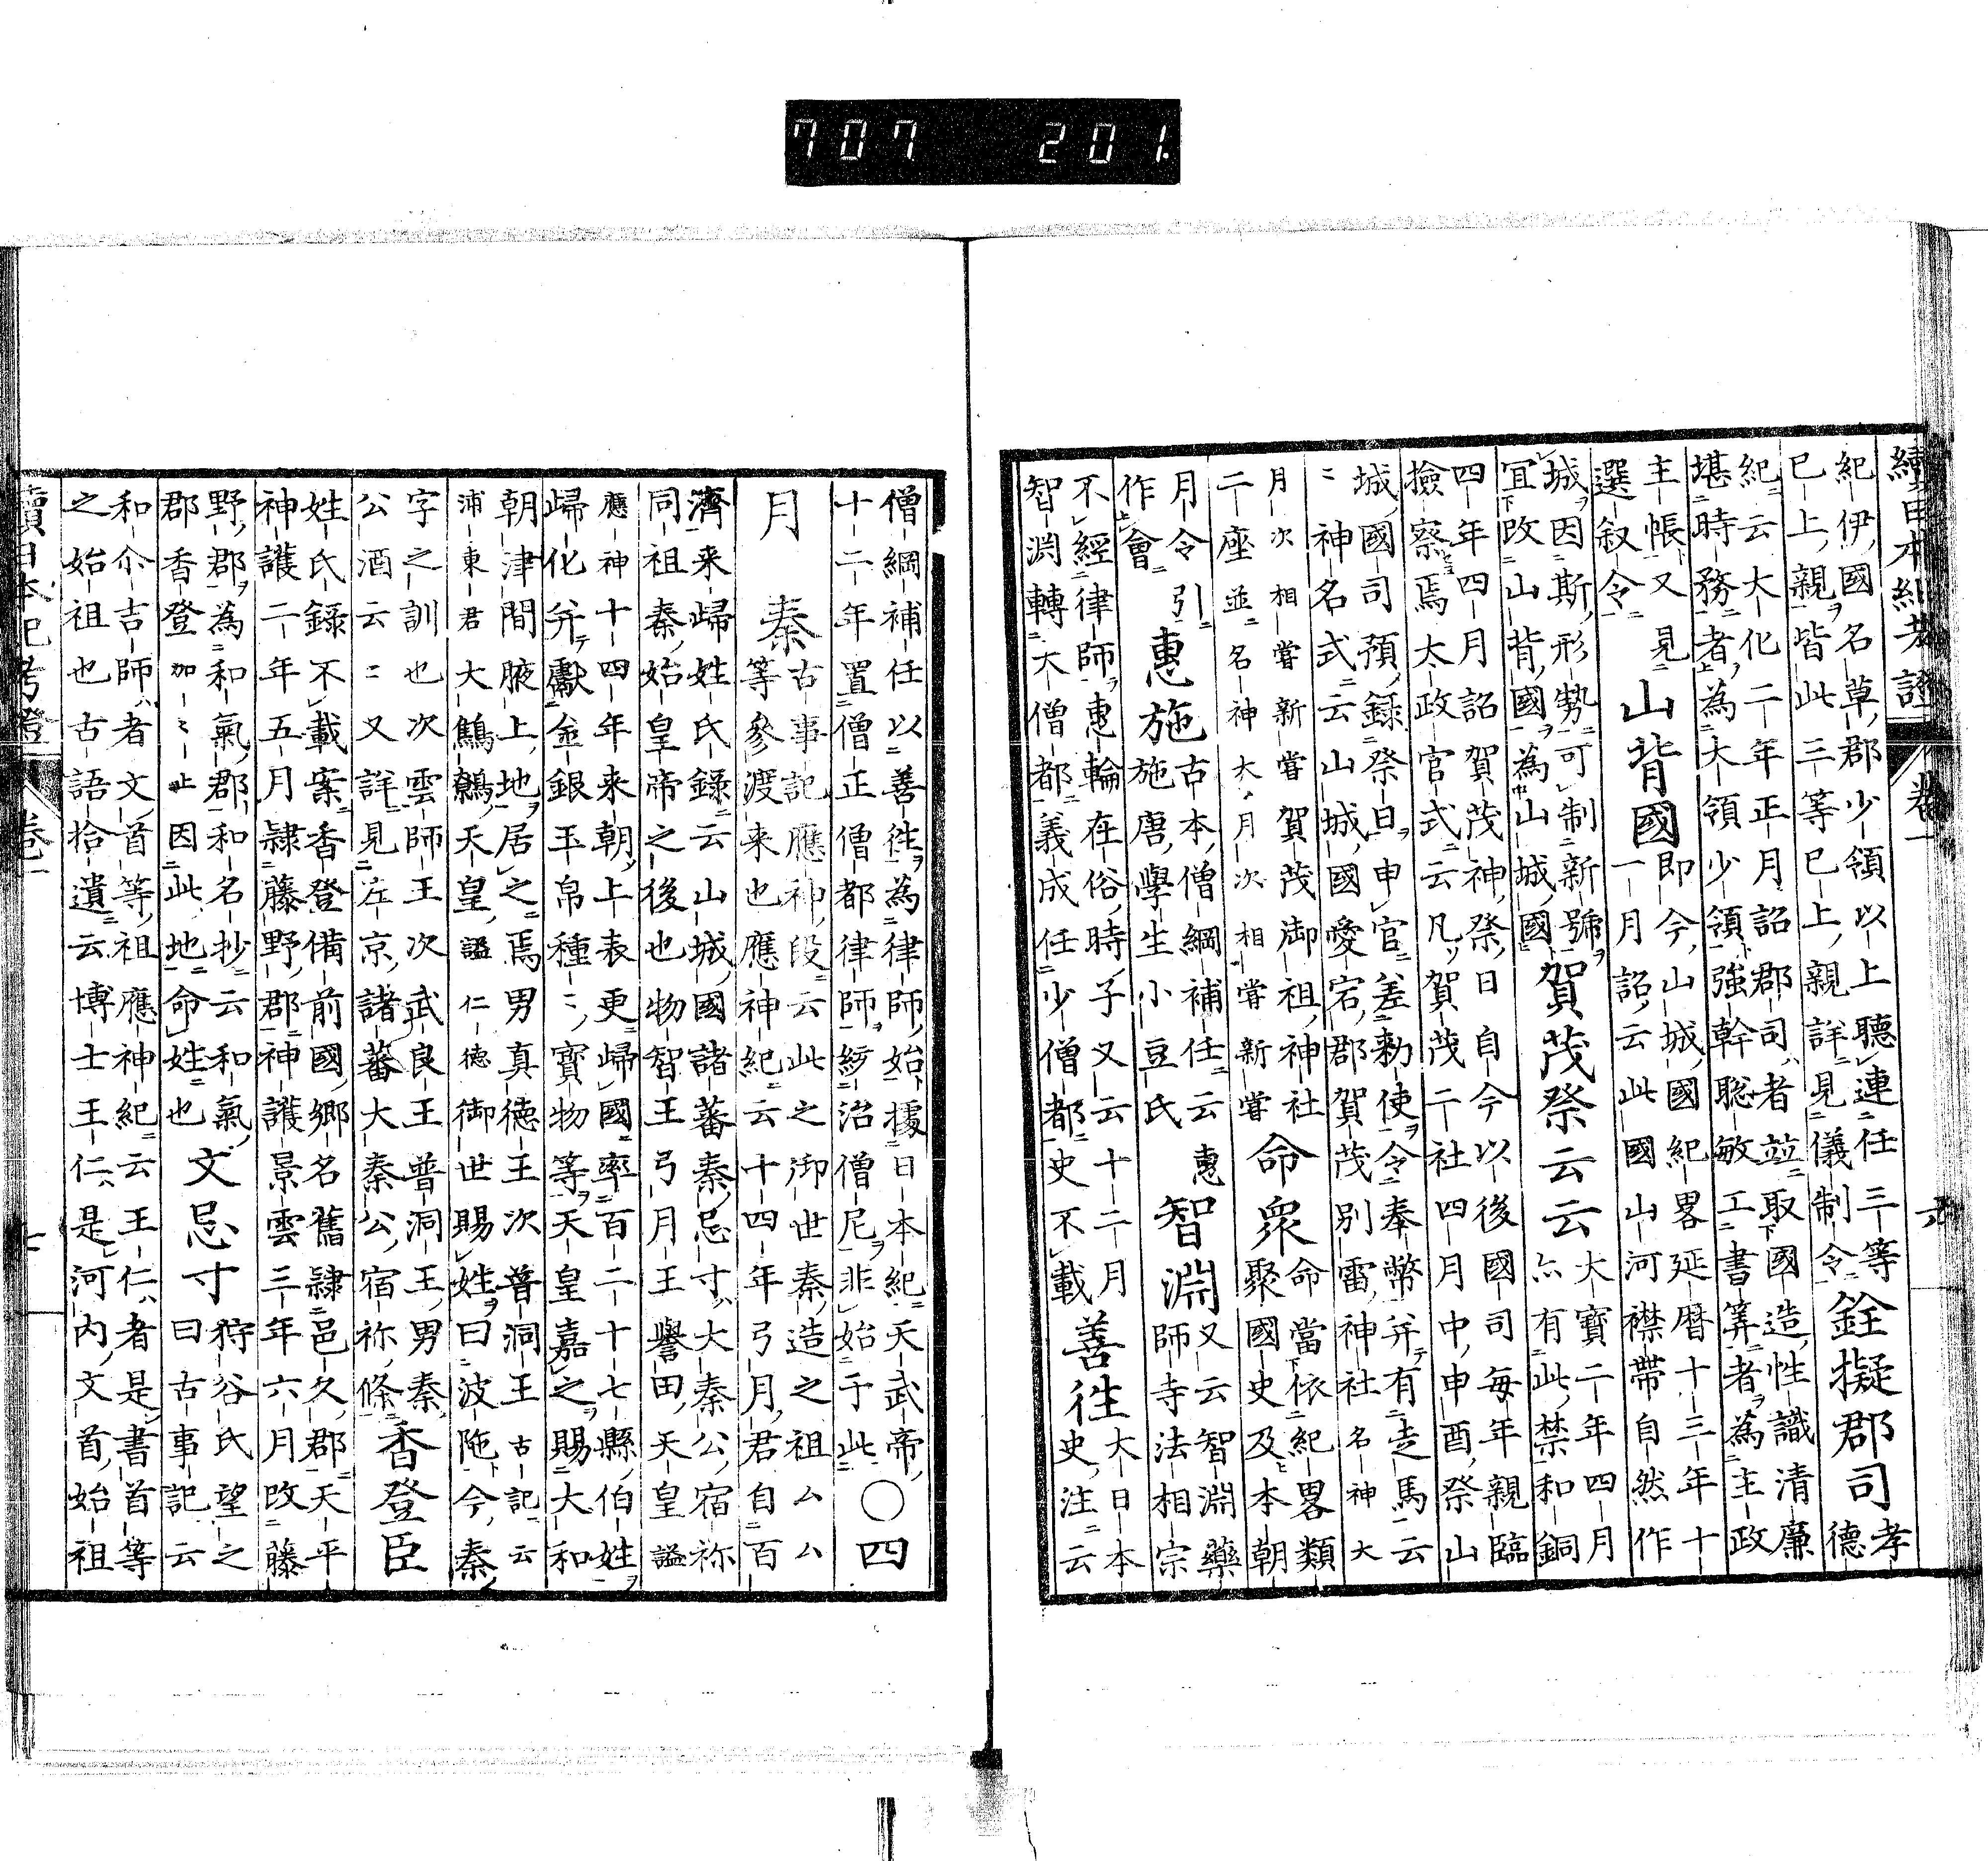 續日本紀考證 卷一 六
紀伊國名草郡少領以上聽連任三等
巳上親皆此三等巳上親詳見儀制令
銓擬郡司
孝
德
紀云大化二年正月詔郡司者並取國造性識清廉
堪時務者為大領少領強幹聰敏工書筭者為主政
主帳又見
選叙令
山背國
即今山城國紀畧延暦十三年十
一月詔云此國山河襟帶自然作
城因斯形勢可制新號
宜改山背國為山城國
賀茂祭云云
大寶二年四月
亦有此禁和銅
四年四月詔賀茂神祭日自今以後國司毎年親臨
撿察焉太政官式云凡賀茂二社四月中申酉祭山
城國司預録祭日申官差勅使令奉幣并有走馬云
〻神名式云山城國愛宕郡賀茂別雷神社名神大
月次相嘗新嘗賀茂御祖神社
二座並名神大月次相嘗新嘗
命衆
命當依紀畧類
聚國史及本朝
月令引
作會
惠施
古本僧綱補任云惠
施唐學生小豆氏
智淵
又云智淵藥
師寺法相宗
不經律師惠輪在俗時子又云十二月
智淵轉大僧都義成任少僧都史不載
善往
大日本
史注云
僧綱補任以善往為律師始據日本紀天武帝
十二年置僧正僧都律師紏治僧尼非始于此
○四
月
秦
古事記應神段云此之御世秦造之祖厶厶
等參渡来也應神紀云十四年弓月君自百
濟来歸姓氏録云山城國諸蕃秦忌寸大秦公宿祢
同祖秦始皇帝之後也物智王弓月王譽田天皇謚
應神十四年来朝上表更歸國率百二十七縣伯姓
歸化并獻金銀玉帛種〻寳物等天皇嘉之賜大和
朝津間腋上地居之焉男真徳王次普洞王古記云
浦東君大鷦鷯天皇謚仁徳御世賜姓曰波陁今秦
字之訓也次雲師王次武良王普洞王男秦
公酒云〻又詳見左京諸蕃大秦公宿祢條
香登臣
姓氏録不載案香登備前國郷名舊隷邑久郡天平
神護二年五月隷藤野郡神護景雲三年六月改藤
野郡為和氣郡和名抄云和氣
郡香登加〻止因此地命姓也
文忌寸
狩谷氏望之
曰古事記云
和尒吉師者文首等祖應神紀云王仁者是書首等
之始祖也古語拾遺云博士王仁是河内文首始祖
續日本紀考證 卷一 七